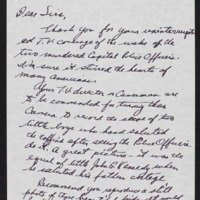 Dear Sirs,
Thank you for your uninterrupt-
ed T.V. coverage of the wake of the
two murdered Capitol Police Officers.
I'm sure it stirred the hearts of
many Americans.
Your T.V. director & Cameraman are
to be commended for turning their
Camera to record the salute of two
little boys who hand saluted
the coffins after seeing the Police Officers
do it. A great picture - it was the
equal of little John Kennedy when
he saluted his father's
Recommend you reproduce still
photo of